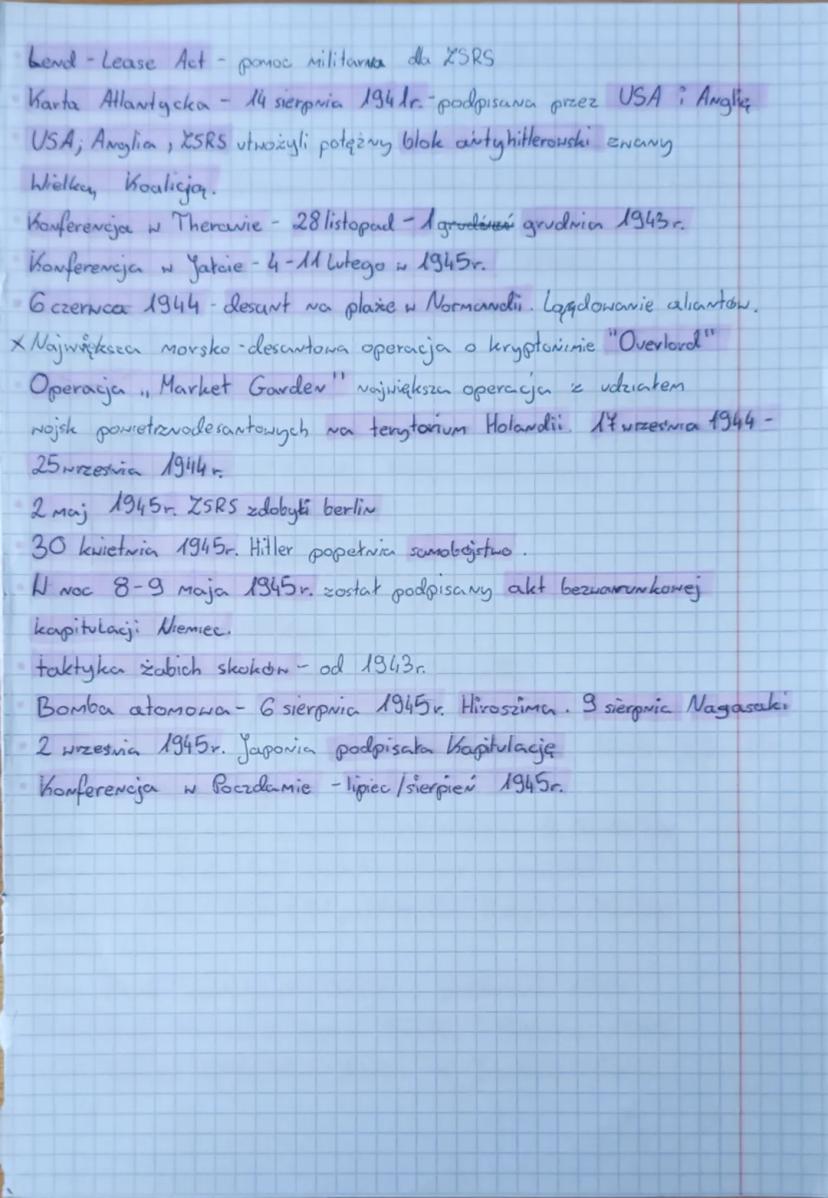 Lend-Lease Act - pomoc militarna dla ZSRS
Karta Atlantycka - 14 sierpnia 1941r. - podpisana przez USA i Anglię
USA, Anglia, ZSRS utwożyli potężny blok antyhitlerowski zwany
Wielką Koalicją.
Konferencja w Theranie - 28 listopad - 1 grudnia 1943r.
Konferencja w Jałcie - 4-11 Lutego w 1945r.
6 czerwca 1944 - desant na plaże w Normandii. Lądowanie aliantów.
x Największa morsko-desantowa operacja o kryptonimie "Overlord"
Operacja „Market Garden" największa operacja z udziałem
wojsk powietrznodesantowych na terytorium Holandii. 17 września 1944 -
25 września 1944r.
2 maj 1945r. ZSRS zdobyli berlin
30 kwietnia 1945r. Hitler popełnia samobójstwo.
W noc 8-9 maja 1945r. został podpisany akt bezwarunkowej
kapitulacji Niemiec.
taktyka żabich skoków - od 1943r.
Bomba atomowa - 6 sierpnia 1945r. Hiroszima. 9 sierpnia Nagasaki
2 września 1945r. Japonia podpisała Kapitulację
Konferencja w Poczdamie - lipiec/sierpień 1945r.